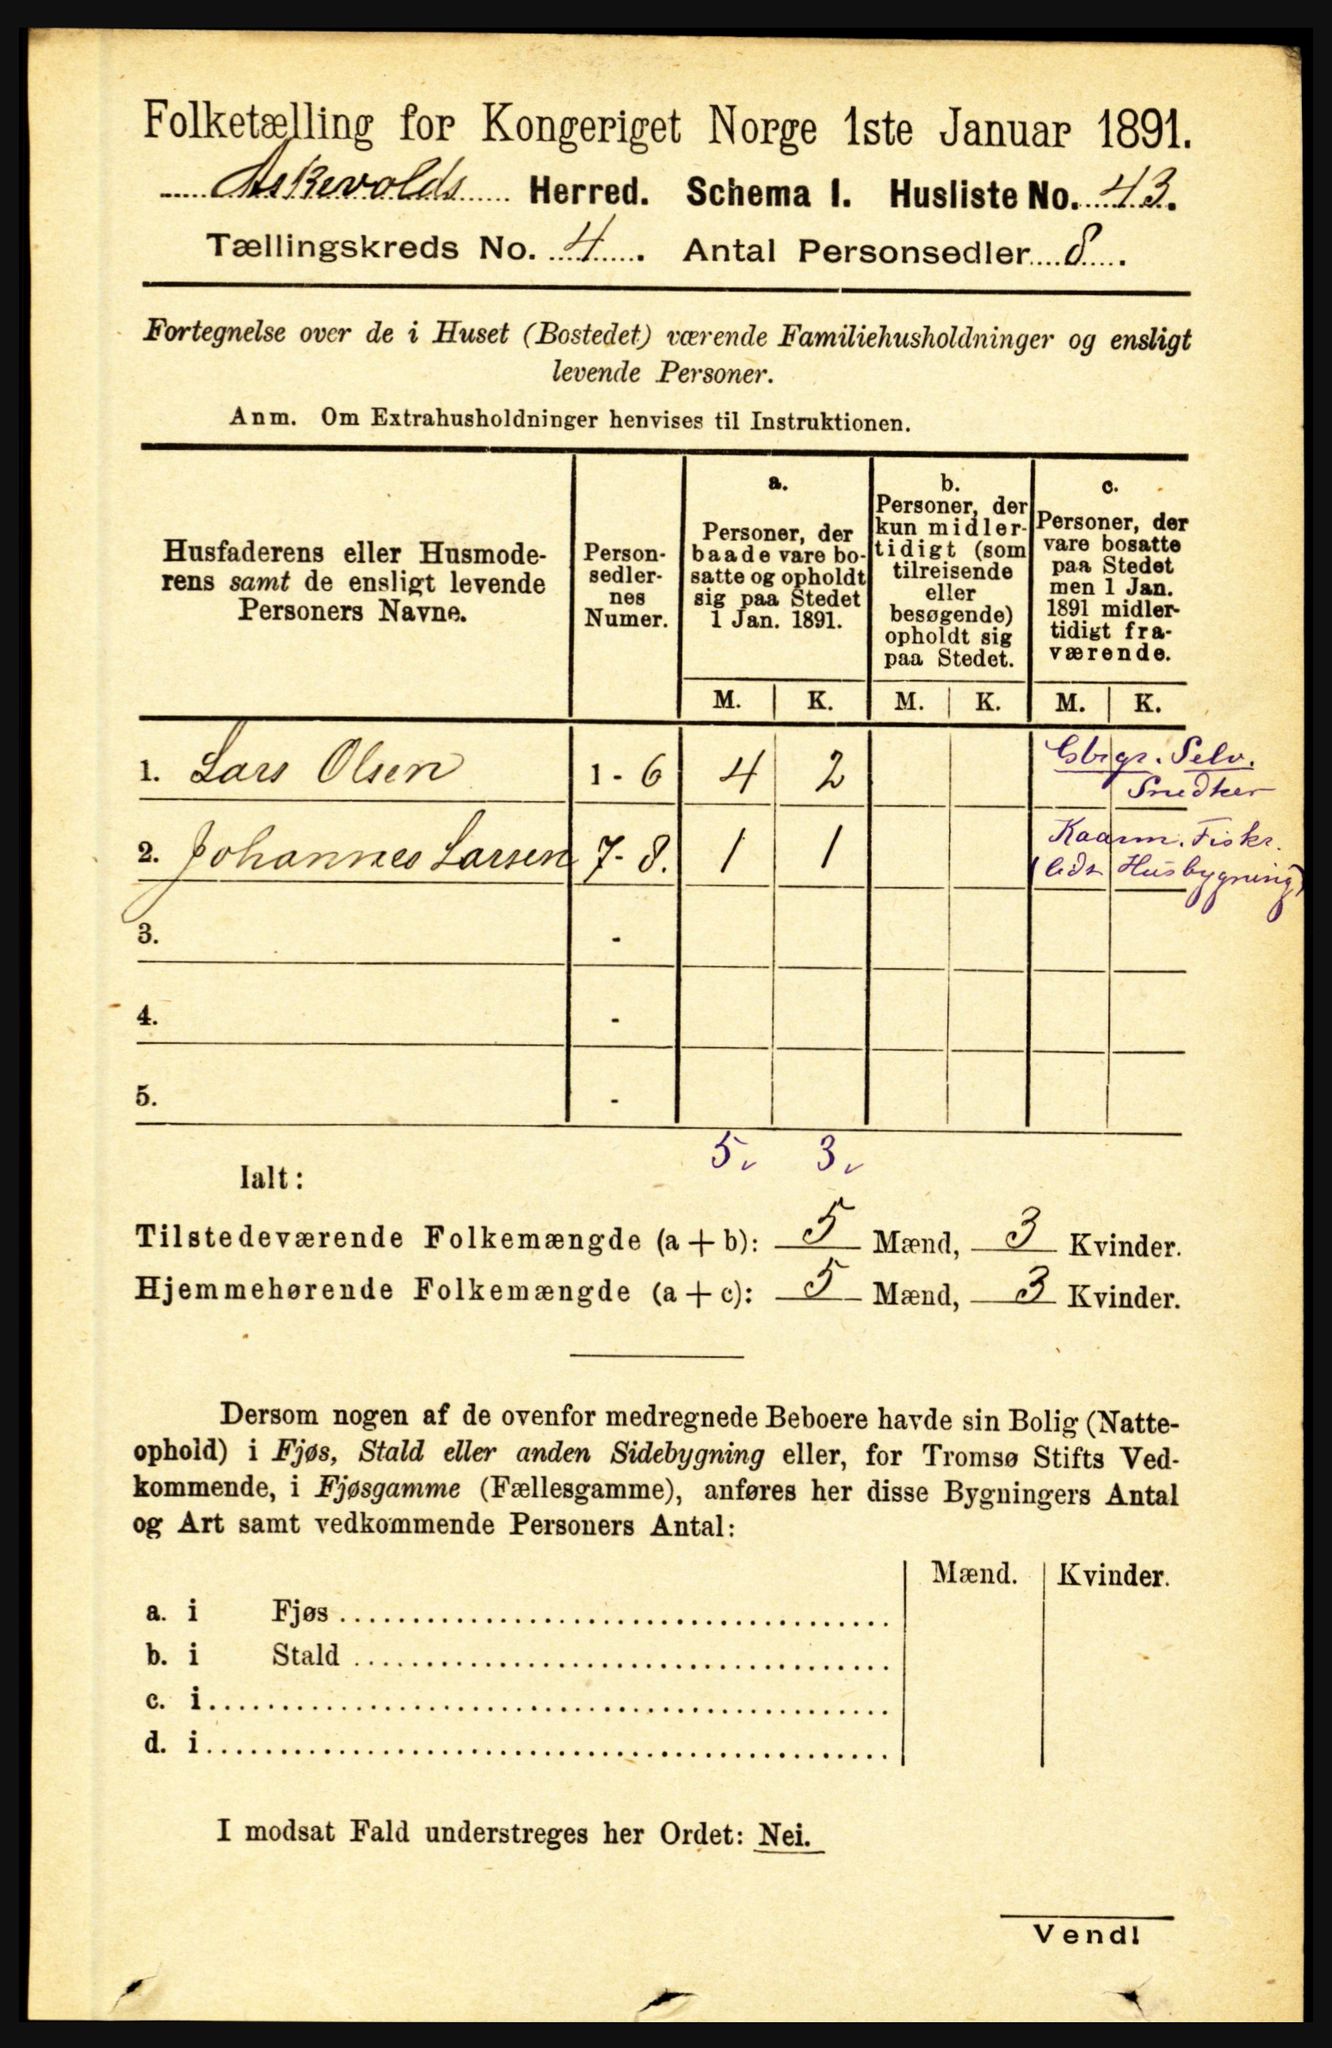 Folketælling for Kongeriget Norge 1ste Januar 1891.
Askevolds Herred. Schema I. Husliste No. 43.
Tællingskreds No. 4. Antal Personsedler 8.
Fortegnelse over de i Huset (Bostedet) værende Familiehusholdninger og ensligt
levende Personer.
Anm. Om Extrahusholdninger henvises til Instruktionen.
Husfaderens eller Husmode-
rens samt de ensligt levende
Personers Navne.
Person-
sedler-
nes
Numer.
a.
Personer, der
baade vare bo-
satte og opholdt
sig paa Stedet
1 Jan. 1891.
b.
Personer, der
kun midler-
tidigt (som
tilreisende
eller
besøgende)
opholdt sig
paa Stedet.
c.
Personer, der
vare bosatte
paa Stedet
men 1 Jan.
1891 midler-
tidigt fra-
værende.
M. K. M. K. M. K.
1. Lars Olsen 1 - 6 4 2 Gbrgr. Selv.
Snedker
2. Johannes Larsen 7 - 8. 1 1 Kaarm. Fiskr.
(leds Husbygning)
3. -
4. -
5. -
5. 3.
Ialt:
Tilstedeværende Folkemængde (a + b): 5 Mænd, 3 Kvinder.
Hjemmehørende Folkemængde (a + c): 5 Mænd, 3 Kvinder.
Dersom nogen af de ovenfor medregnede Beboere havde sin Bolig (Natte-
ophold) i Fjøs, Stald eller anden Sidebygning eller, for Tromsø Stifts Ved-
kommende, i Fjøsgamme (Fællesgamme), anføres her disse Bygningers Antal
og Art samt vedkommende Personers Antal:
Mænd. Kvinder.
a. i Fjøs
b. i Stald
c. i
d. i
I modsat Fald understreges her Ordet: Nei.
Vend!